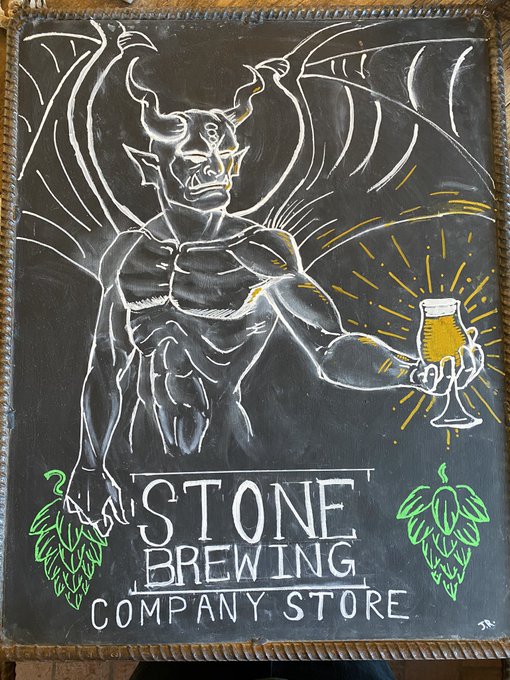 STONE
BREWING
COMPANY STORE
J.R.